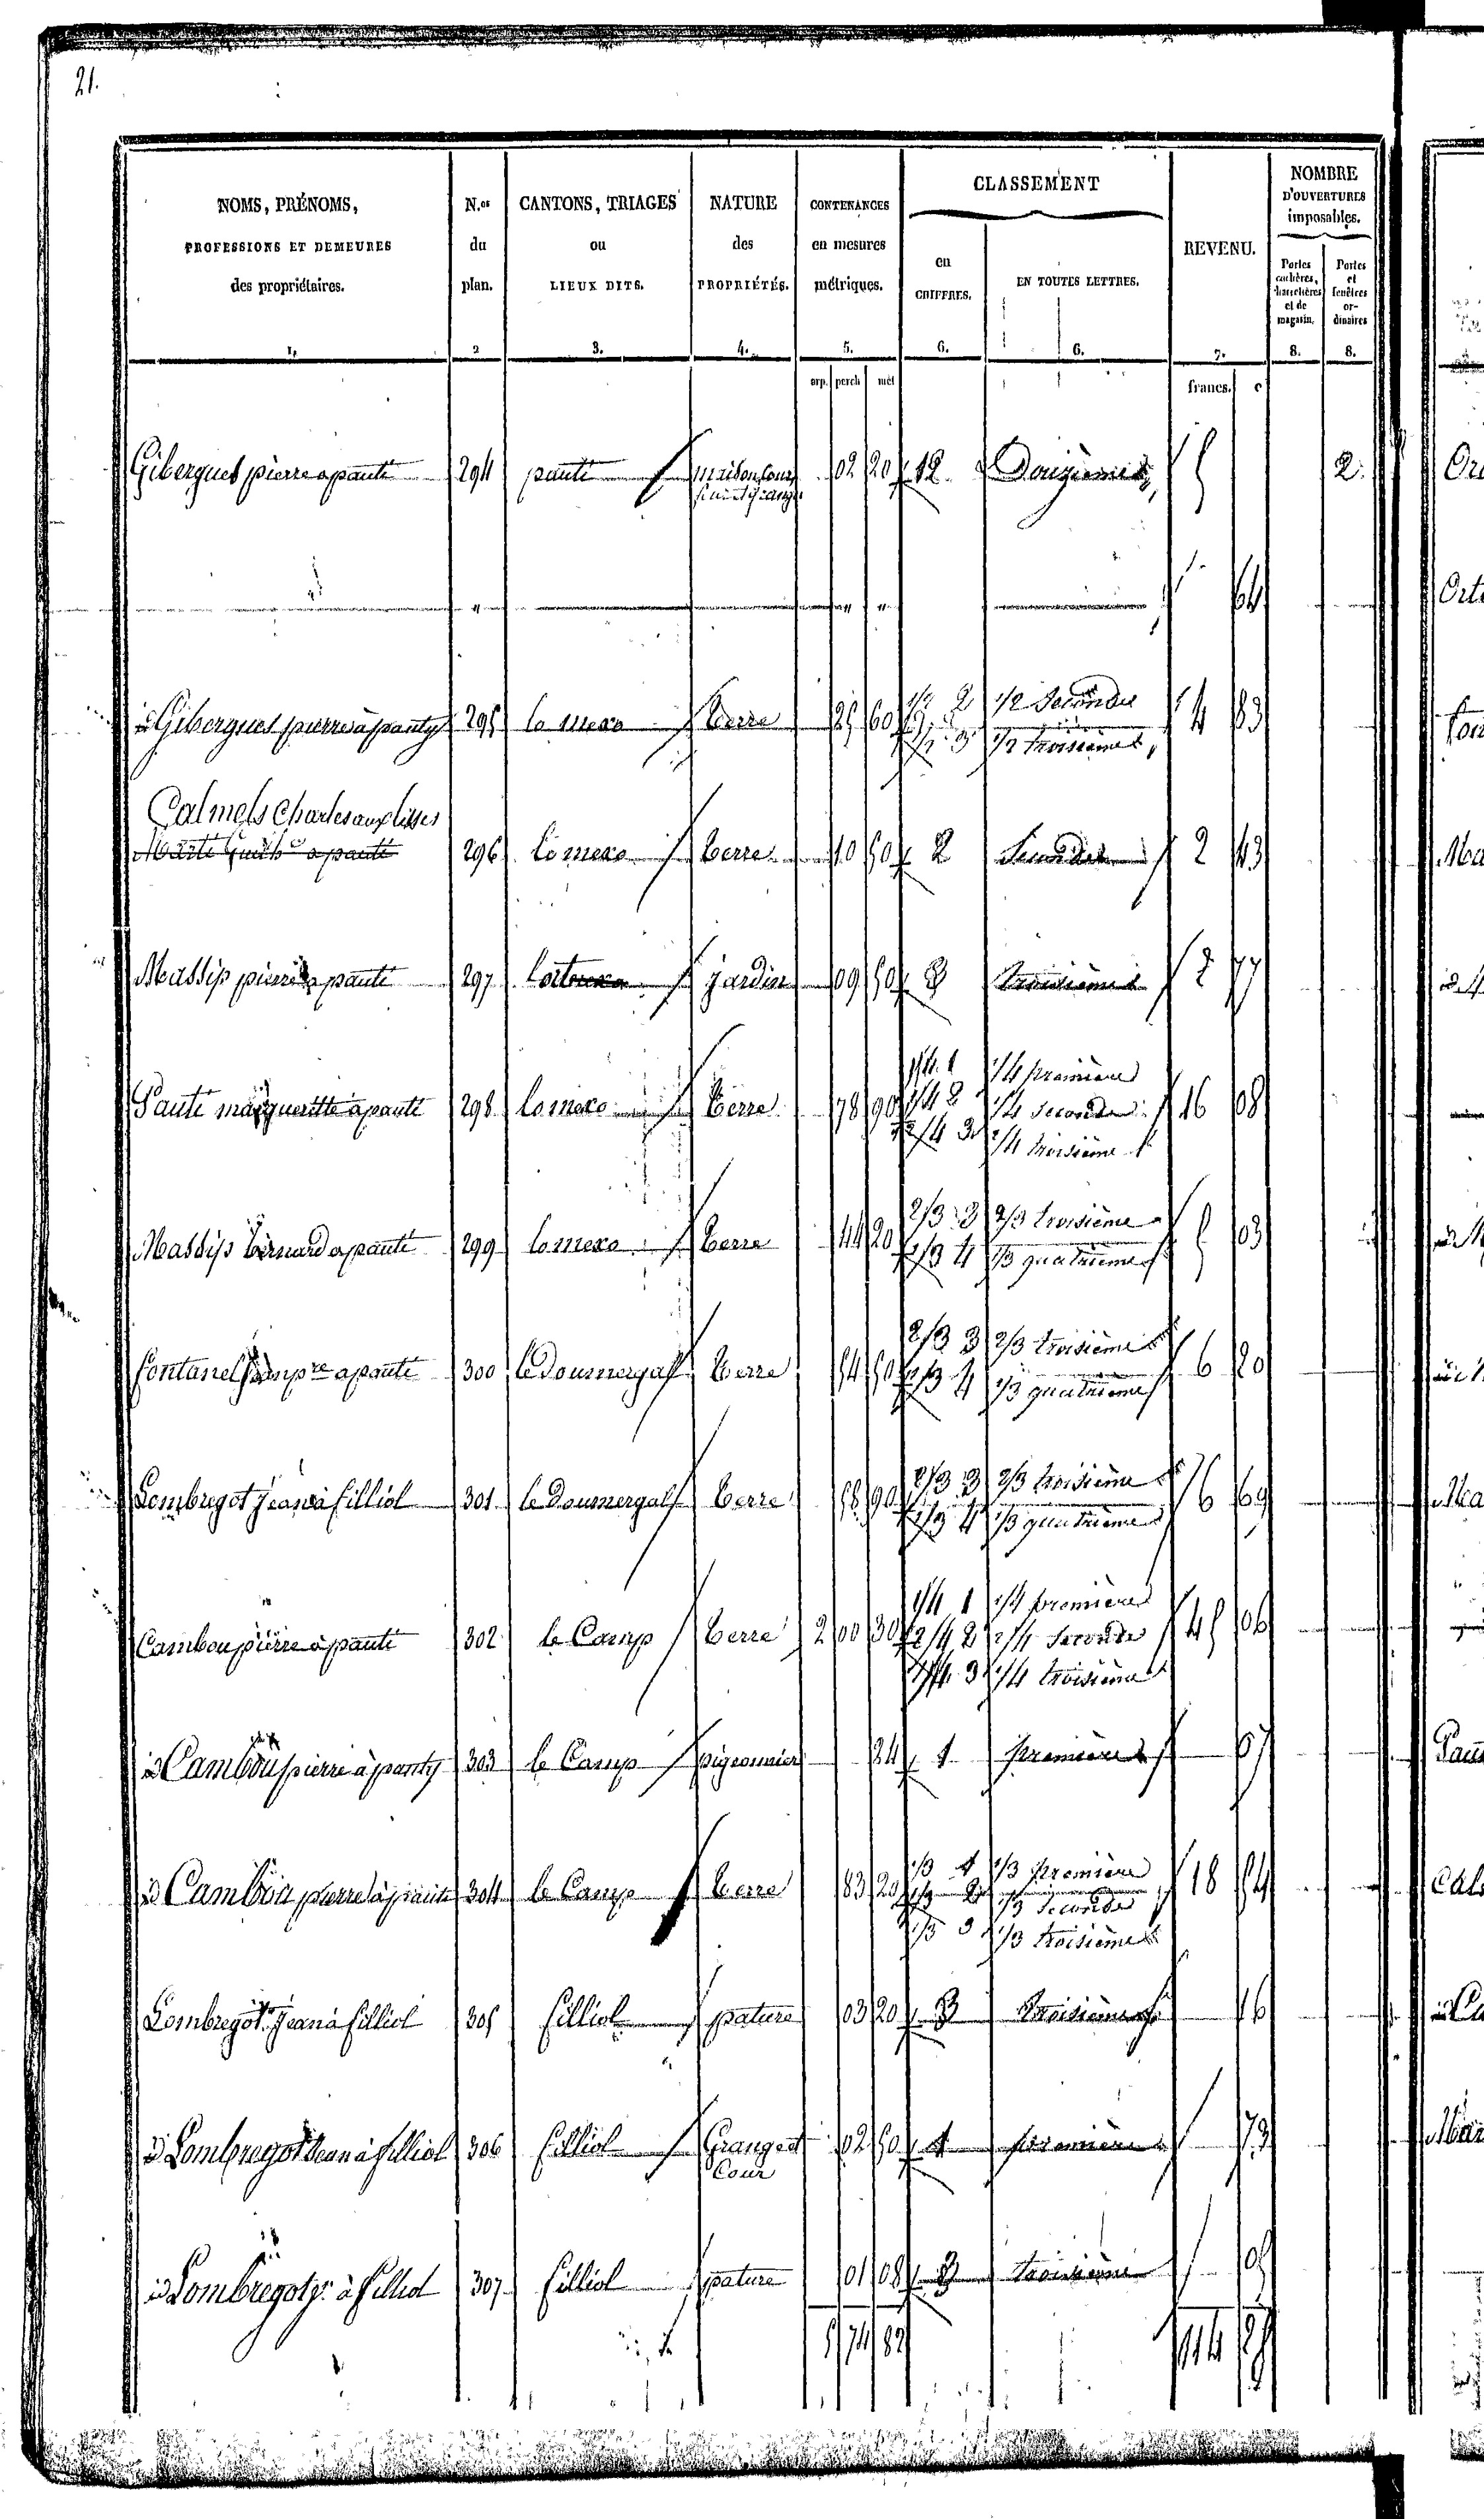 21.
NOMS, PRÉNOMS, PROFESSIONS ET DEMEURES des propriétaires. 1.
N.os du plan. 2
CANTONS, TRIAGES ou LIEUX DITS. 3.
NATURE des PROPRIÉTÉS. 4.
CONTENANCES en mesures métriques. 5.
CLASSEMENT
en CHIFFRES. 6.
EN TOUTES LETTRES. 6.
REVENU. 7.
NOMBRE D'OUVERTURES imposables.
Portes cochères, charretières et de magasin. 8.
Portes et fenêtres ordinaires 8.
arp. perch mèt francs. c
Gibergues pierre a panti 294 panti maison cour 02 20 12 Douzième 5 2
64
id Gibergues pierre à panty 295 lo mero terre 25 60 1/2 2 1/2 Seconde 4 83
1/2 3 1/2 troisième
Calmels Charles aux
296 lo mero terre 10 50 2 Seconde 2 43
Massip pierre a panti 297 jardin 09 50 3 troisième 2 77
Panti margueritte à panti 298 lo mero terre 78 90 1/4 1 1/4 première 16 08
1/4 2 1/4 Seconde
2/4 3 2/4 troisième
Massip bernard a panti 299 lo mero terre 44 20 2/3 3 2/3 troisième 5 03
1/3 4 1/3 quatrième
fontanel a panti 300 le doumergal terre 54 50 2/3 3 2/3 troisième 6 20
1/3 4 1/3 quatrième
Lombregot jean à filliol 301 le doumergal terre 58 90 2/3 3 2/3 troisième 6 69
1/3 4 1/3 quatrième
Cambou pierre à panti 302 le Camp terre 2 00 30 1/4 1 1/4 première 45 06
2/4 2 2/4 Seconde
1/4 3 1/4 troisième
id Cambou pierre à panty 303 le Camp pigeonnier 24 1 première 07
id Cambou pierre à panti 304 le Camp terre 83 20 1/3 1 1/3 première 18 54
1/3 2 1/3 Seconde
1/3 3 1/3 troisième
Lombregot jean à filliol 305 filliol pature 03 20 3 troisième 16
id Lombregot Jean à filliol 306 filliol Grange et 02 50 1 première 73
Cour
id Lombregot jn à filliol 307 filliol pature 01 08 3 troisième 05
5 74 82 114